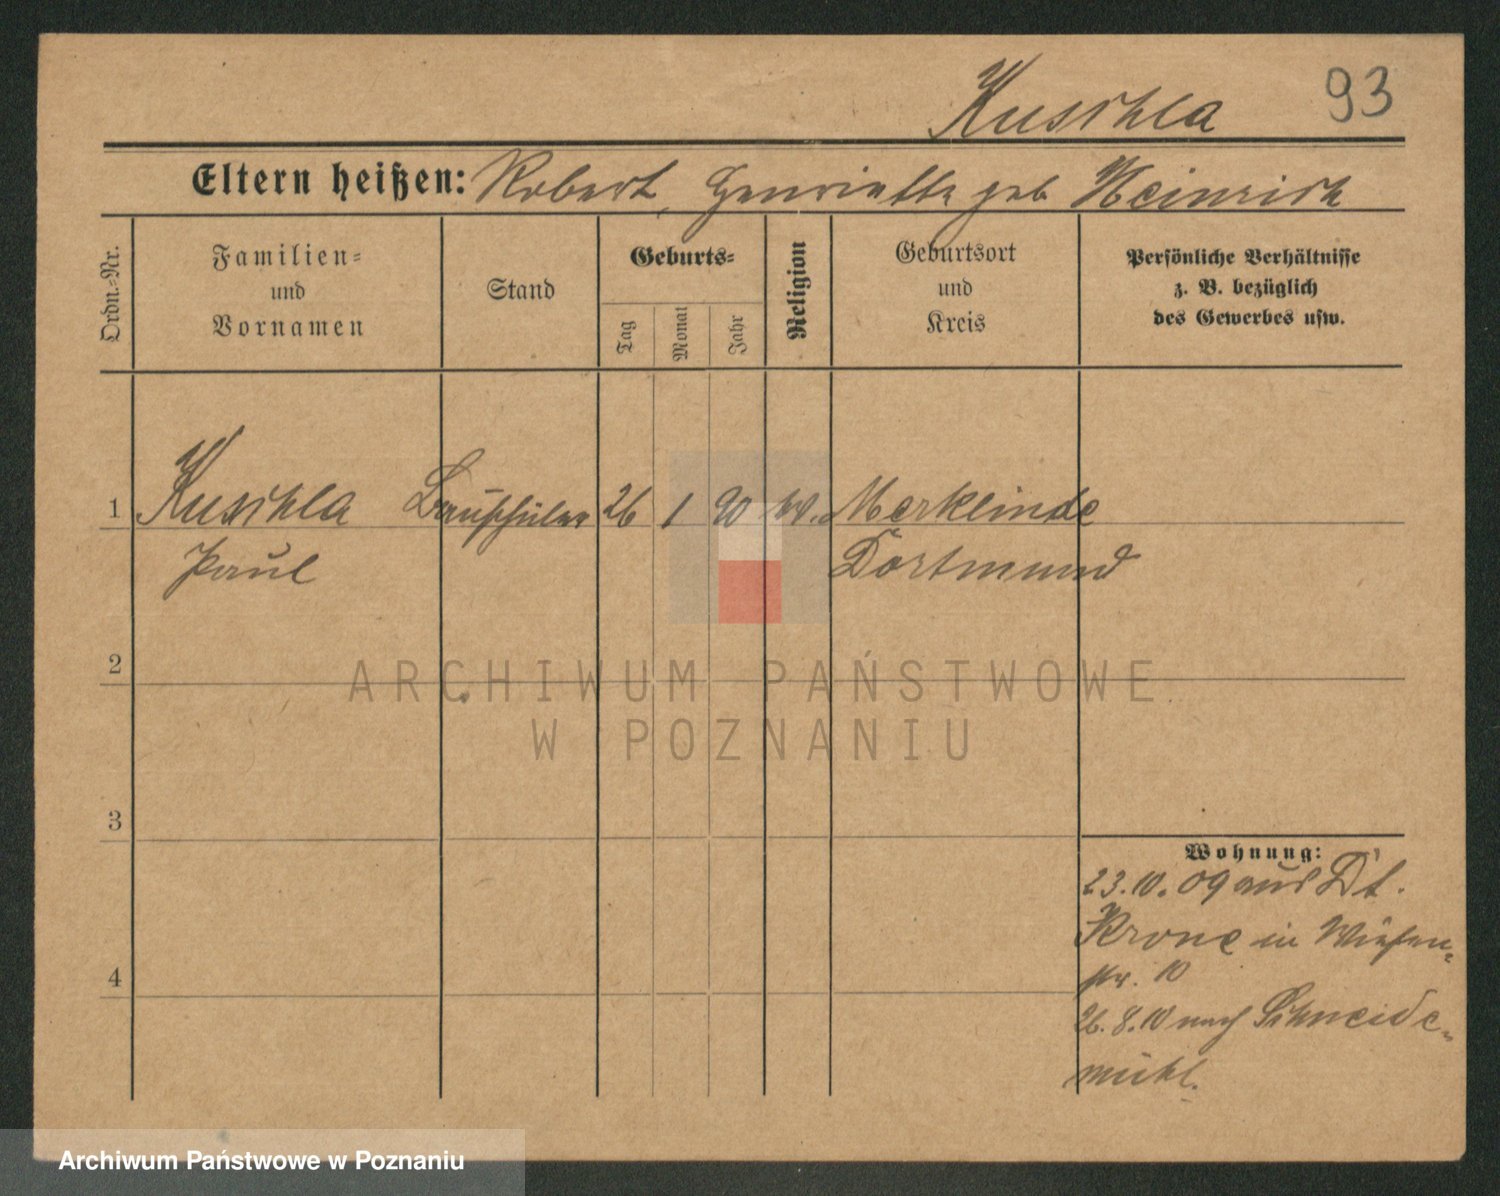 Kuschla 93
Eltern heißen: Robert, Henriette geb Heinrich
Ordn.-Nr.
Familien-
und
Vornamen
Stand
Geburts-
Tag
Monat
Jahr
Religion
Geburtsort
und
Kreis
Persönliche Verhältnisse
z. B. bezüglich
des Gewerbes usw.
1 Kuschla Bauschüler 26 1 90 Merklinde
Paul Dortmund
2
ARCHIWUM PAŃSTWOWE
W POZNANIU
3
Wohnung:
23.10.09 aus Dt.
Krone in Wiesen-
str. 10
4
26.8.10 nach Schneide-
mühl.
Archiwum Państwowe w Poznaniu